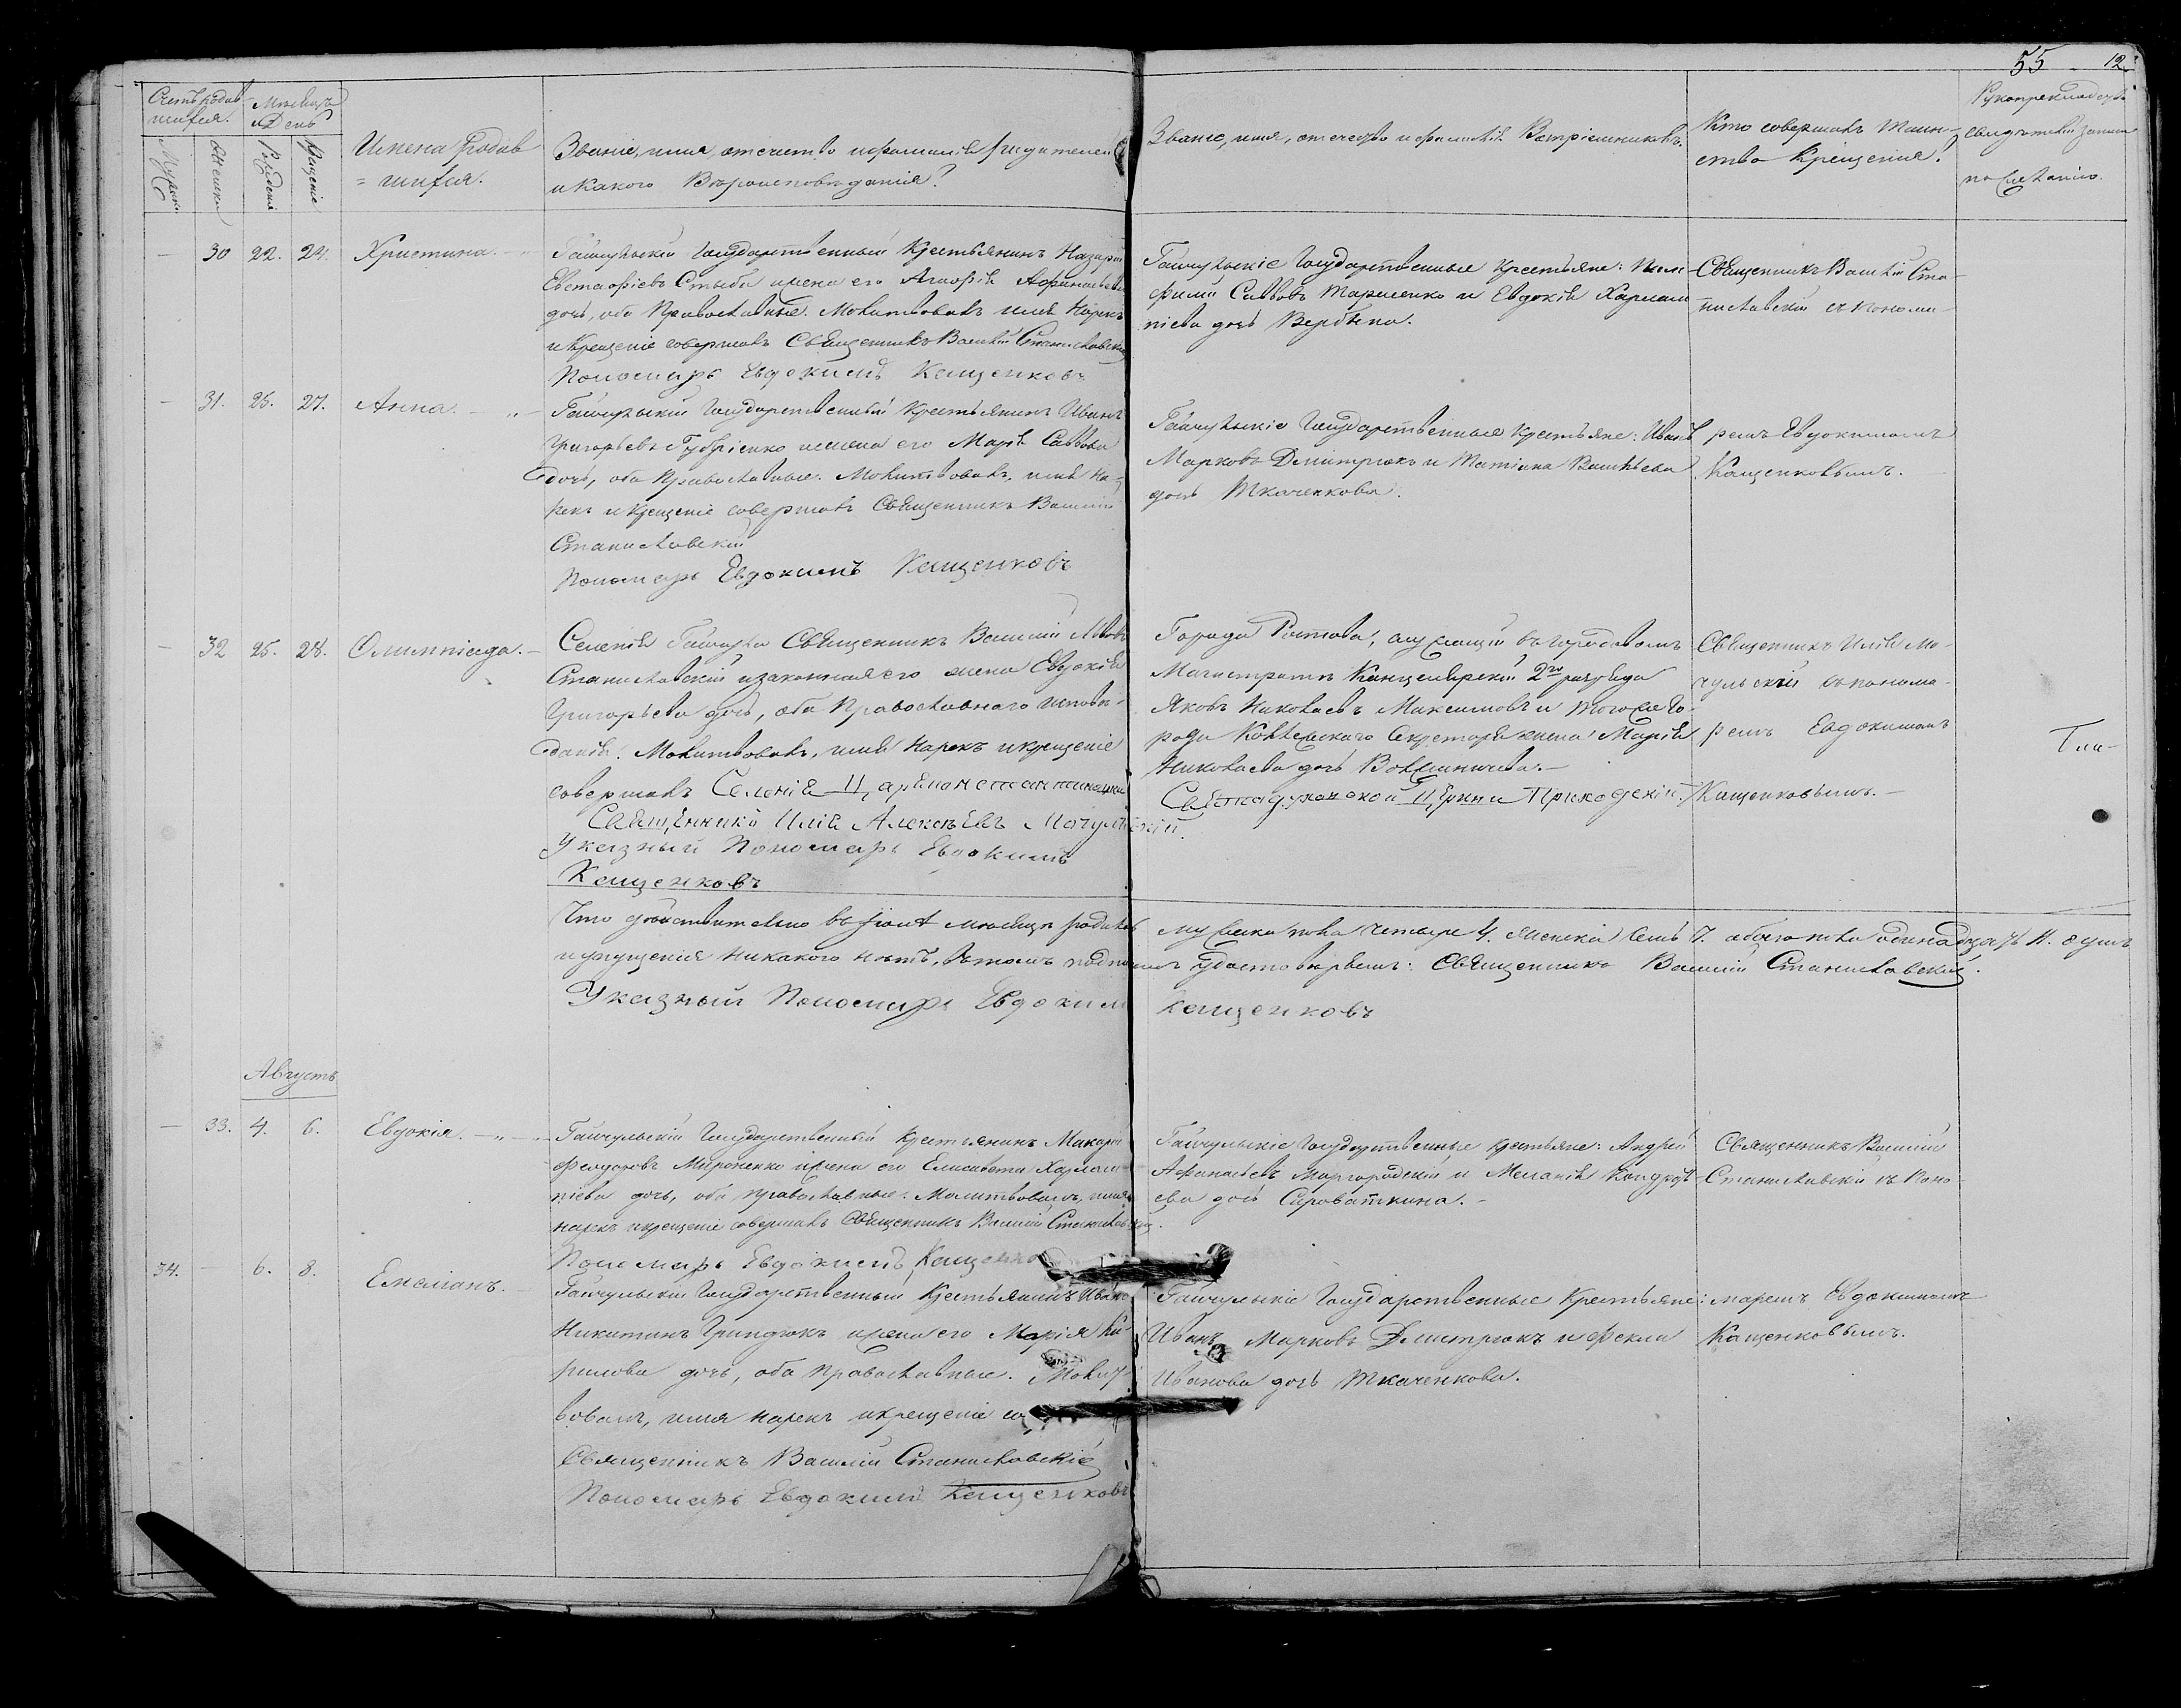 55 12.
Счетъ родив-
шихся.
Мѣсяцъ
и День
Мужска
Женска
Рожденія
Крещенія
Имена родив-
шихся.
Званіе, имя, отчество и фамилія родителей
и какого вѣроисповѣданія?
Званіе, имя, отчество и фамилія Воспріемниковъ.
Кто совершалъ таин-
ство Крещенія?
Рукоприкладство
свидѣтелей записи
по желанію.
— 30 22. 24. Христина.
Гайчульскій Государственный Крестьянинъ Назарій
Евстафіевъ Стыба и жена его Агафія Афанасьева
дочь, оба Православные. Молитвовалъ имя Нарекъ
и Крещеніе совершалъ Священникъ Василій Станиславскій
Пономарь Евдокимъ Кащенковъ
Гайчульскіе Государственные Крестьяне:
Саввовъ Тарасенко и Евдокія Харлам
піева дочь Вербина.
Священникъ Василій Ста-
ниславскій съ понома-
— 31. 25. 27. Анна.
Гайчульскій Государственный Крестьянинъ Иванъ
Григорьевъ Губріенко и жена его Марѳа Саввова
дочь, оба Православные. Молитвовалъ, имя На-
рекъ и Крещеніе совершалъ Священникъ Василій
Станиславскій
Пономарь Евдокимъ Кащенковъ
Гайчульскіе Государственные Крестьяне: Иванъ
Марковъ Дмитрюкъ и Татіана Васильева
дочь Ткаченкова.
ремъ Евдокимомъ
Кащенковымъ.
— 32 25. 28. Олимпіада.
Селенія Гайчула Священникъ Василій Львовъ
Станиславскій и законная его жена Евдокія
Григорьева дочь, оба Православнаго исповѣ-
данія. Молитвовалъ, имя Нарекъ и крещеніе
совершалъ Селенія Цареконстантиновки
Священникъ Илія Алексѣевъ Мочульскій.
Указный Пономарь Евдокимъ
Кащенковъ
Города Ростова, служащій въ городовомъ
Магистратѣ Канцелярскій 2го разряда
Яковъ Николаевъ Максимовъ и того же Го-
рода Коллежскаго Секретаря жена Марія
Николаева дочь
Святодуховской Церкви Приходскій
Священникъ Илія Мо-
чульскій съ понома-
ремъ Евдокимомъ
Кащенковымъ.
Что дѣйствительно въ Іюлѣ мѣсяцѣ родилось мужеска пола четыре 4. женска семь 7. обоего пола одинадцать 11. душъ
и упущенія никакого нѣтъ, въ томъ подписомъ удостовѣряемъ: Священникъ Василій Станиславскій.
Указный Пономарь Евдокимъ Кащенковъ
Августъ
— 33. 4. 6. Евдокія.
Гайчульскій Государственный Крестьянинъ Макарій
Феодоровъ Мироненко и жена его Елисавета Харлам-
піева дочь, оба православные. Молитвовалъ, имя
нарекъ и крещеніе совершалъ Священникъ Василій Станиславскій.
Пономарь Евдокимъ Кащенко
Гайчульскіе Государственные крестьяне: Андрей
Афанасьевъ Миргородскій и Меланія Кондрать-
ева дочь Сироваткина.
Священникъ Василій
Станиславскій съ Поно-
34. — 6. 8. Емеліанъ.
Гайчульскій Государственный Крестьянинъ Иванъ
Никитинъ Гриндюкъ и жена его Марія Ки-
рилова дочь, оба Православные. Молит-
вовалъ, имя нарекъ и крещеніе со
Священникъ Василій Станиславскій
Пономарь Евдокимъ Кащенковъ
Гайчульскіе Государственные Крестьяне:
Иванъ Марковъ Дмитрюкъ и Фекла
Иванова дочь Ткаченкова.
маремъ Евдокимомъ
Кащенковымъ.